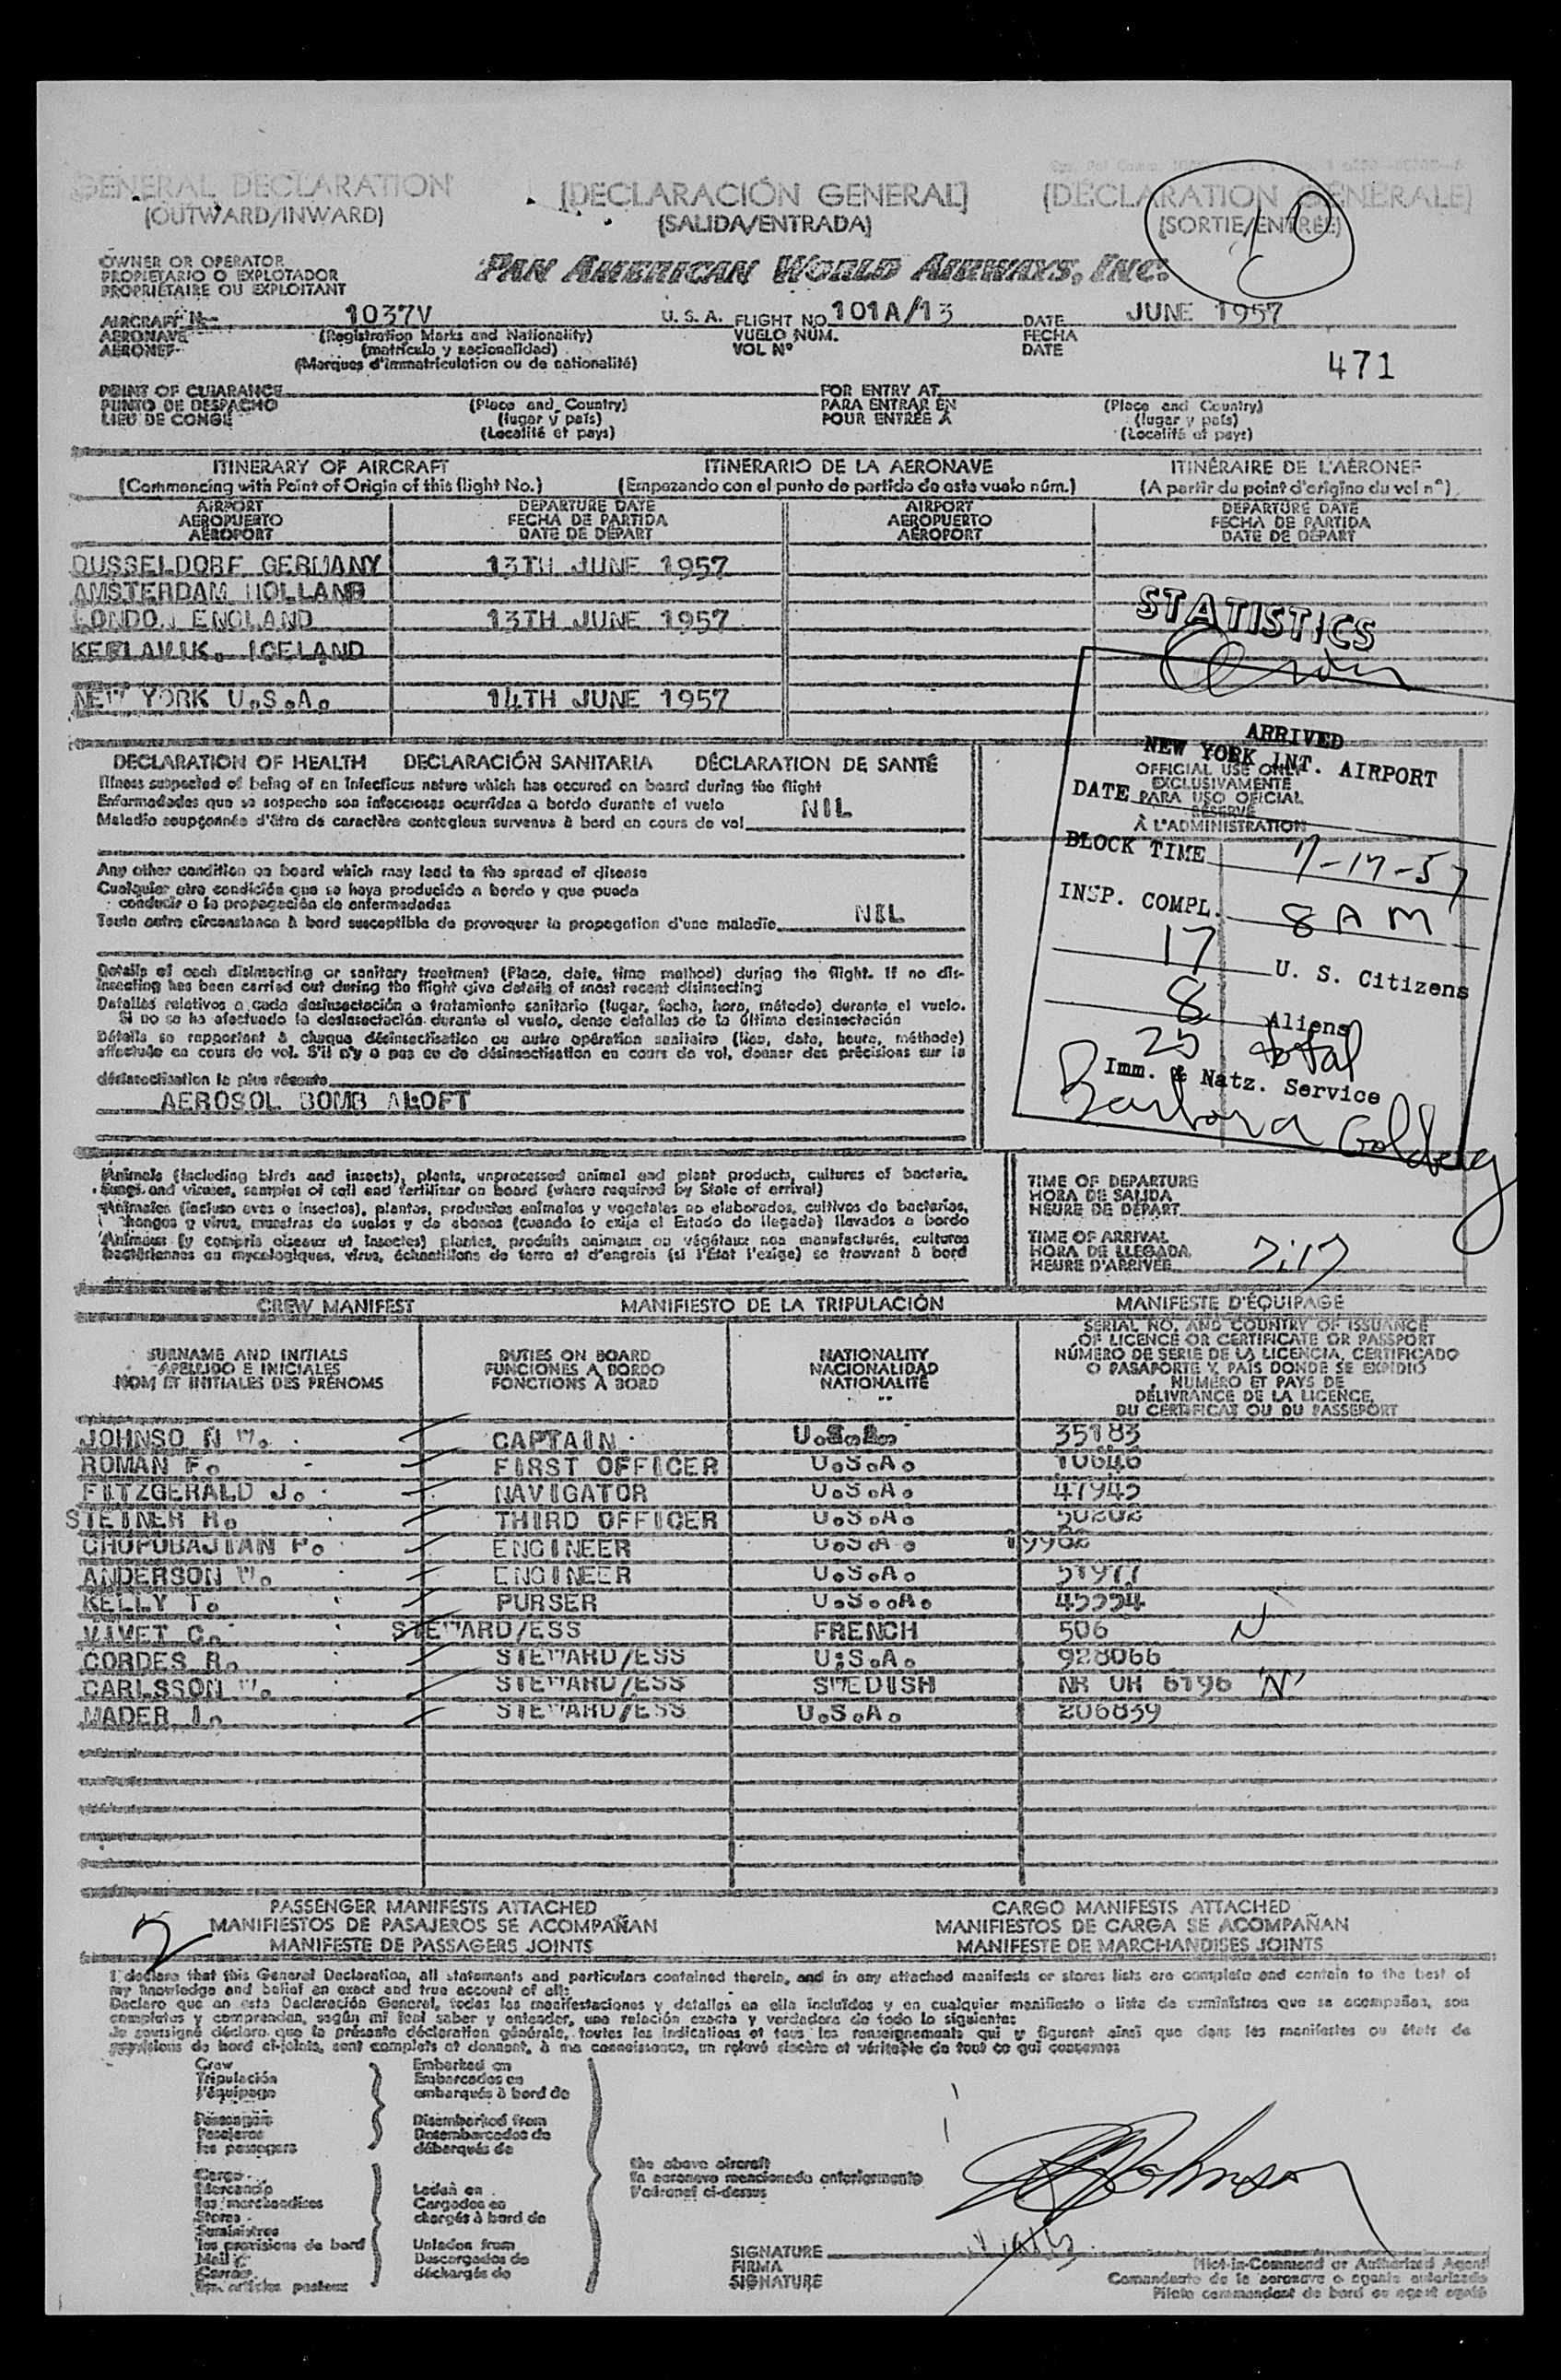 GENERAL DECLARATION [DECLARACIÓN GENERAL] [DÉCLARATION GÉNÉRALE]
(OUTWARD/INWARD) (SALIDA/ENTRADA) (SORTIE/ENTRÉE)
OWNER OR OPERATOR
PROPIETARIO O EXPLOTADOR
PROPRIÉTAIRE OU EXPLOITANT
PAN AMERICAN WORLD AIRWAYS, INC.
AIRCRAFT N- 1037V U. S. A. FLIGHT NO. 101A/13 DATE JUNE 1957
AERONAVE (Registration Marks and Nationality) VUELO NÚM. FECHA
AÉRONEF (matrícula y nacionalidad) VOL Nº DATE
(Marques d'immatriculation ou de nationalité)
471
POINT OF CLEARANCE FOR ENTRY AT
PUNTO DE DESPACHO (Place and Country) PARA ENTRAR EN (Place and Country)
LIEU DE CONGÉ (lugar y país) POUR ENTRÉE À (lugar y país)
(Localité et pays) (Localité et pays)
ITINERARY OF AIRCRAFT ITINERARIO DE LA AERONAVE ITINÉRAIRE DE L'AÉRONEF
(Commencing with Point of Origin of this flight No.) (Empezando con el punto de partida de este vuelo núm.) (A partir du point d'origine du vol nº)
AIRPORT DEPARTURE DATE AIRPORT DEPARTURE DATE
AEROPUERTO FECHA DE PARTIDA AEROPUERTO FECHA DE PARTIDA
AÉROPORT DATE DE DÉPART AÉROPORT DATE DE DÉPART
DUSSELDORF GERMANY 13TH JUNE 1957
AMSTERDAM HOLLAND
LONDON ENGLAND 13TH JUNE 1957
KEFLAVIK. ICELAND
NEW YORK U.S.A. 14TH JUNE 1957
STATISTICS
DECLARATION OF HEALTH DECLARACIÓN SANITARIA DÉCLARATION DE SANTÉ
Illness suspected of being of an infectious nature which has occured on board during the flight
Enfermedades que se sospecha son infecciosas ocurridas a bordo durante el vuelo
Maladie soupçonnée d'être de caractère contagieux survenue à bord en cours de vol NIL
Any other condition on board which may lead to the spread of disease
Cualquier otra condición que se haya producido a bordo y que pueda
conducir a la propagación de enfermedades
Toute autre circonstance à bord susceptible de provoquer la propagation d'une maladie NIL
Details of each disinsecting or sanitary treatment (Place, date, time method) during the flight. If no dis-
insecting has been carried out during the flight give details of most recent disinsecting
Detalles relativos a cada desinsectación o tratamiento sanitario (lugar, fecha, hora, método) durante el vuelo.
Si no se ha efectuado la desinsectación durante el vuelo, dense detalles de la última desinsectación
Détails se rapportant à chaque désinsectisation ou autre opération sanitaire (lieu, date, heure, méthode)
effectuée en cours de vol. S'il n'y a pas eu de désinsectisation en cours de vol, donner des précisions sur la
désinsectisation la plus récente
AEROSOL BOMB ALOFT
OFFICIAL USE ONLY
EXCLUSIVAMENTE
PARA USO OFICIAL
RÉSERVÉ
À L'ADMINISTRATION
ARRIVED
NEW YORK INT. AIRPORT
DATE
BLOCK TIME 7-17-57
INSP. COMPL. 8 AM
17 U. S. Citizens
8 Aliens
25 total
Imm. & Natz. Service
Barbara Goldberg
Animals (including birds and insects), plants, unprocessed animal and plant products, cultures of bacteria,
fungi and viruses, samples of soil and fertilizer on board (where required by State of arrival)
Animales (incluso aves e insectos), plantas, productos animales y vegetales no elaborados, cultivos de bacterias,
hongos y virus, muestras de suelos y de abonos (cuando lo exija el Estado de llegada) llevados a bordo
Animaux (y compris oiseaux et insectes) plantes, produits animaux ou végétaux non manufacturés, cultures
bactériennes ou mycologiques, virus, échantillons de terre et d'engrais (si l'État l'exige) se trouvant à bord
TIME OF DEPARTURE
HORA DE SALIDA
HEURE DE DÉPART
TIME OF ARRIVAL
HORA DE LLEGADA
HEURE D'ARRIVÉE 7:17
CREW MANIFEST MANIFIESTO DE LA TRIPULACIÓN MANIFESTE D'ÉQUIPAGE
SURNAME AND INITIALS DUTIES ON BOARD NATIONALITY
APELLIDO E INICIALES FUNCIONES A BORDO NACIONALIDAD
NOM ET INITIALES DES PRÉNOMS FONCTIONS À BORD NATIONALITÉ
SERIAL NO. AND COUNTRY OF ISSUANCE
OF LICENCE OR CERTIFICATE OR PASSPORT
NÚMERO DE SERIE DE LA LICENCIA, CERTIFICADO
O PASAPORTE Y PAÍS DONDE SE EXPIDIÓ
NUMÉRO ET PAYS DE
DÉLIVRANCE DE LA LICENCE,
DU CERTIFICAT OU DU PASSEPORT
JOHNSO N W. CAPTAIN U.S.A. 35183
ROMAN F. FIRST OFFICER U.S.A. 10646
FITZGERALD J. NAVIGATOR U.S.A. 47945
STEINER R. THIRD OFFICER U.S.A. 50202
CHOPOBAJIAN P. ENGINEER U.S.A. 19982
ANDERSON W. ENGINEER U.S.A. 51977
KELLY T. PURSER U.S..A. 45554
VIVET C. STEWARD/ESS FRENCH 506 N
CORDES R. STEWARD/ESS U;S.A. 928066
CARLSSON W. STEWARD/ESS SWEDISH NR UH 6196 "N"
MADER I. STEWARD/ESS U.S.A. 206839
PASSENGER MANIFESTS ATTACHED CARGO MANIFESTS ATTACHED
2 MANIFIESTOS DE PASAJEROS SE ACOMPAÑAN MANIFIESTOS DE CARGA SE ACOMPAÑAN
MANIFESTE DE PASSAGERS JOINTS MANIFESTE DE MARCHANDISES JOINTS
I declare that this General Declaration, all statements and particulars contained therein, and in any attached manifests or stores lists are complete and contain to the best of
my knowledge and belief an exact and true account of all:
Declaro que en esta Declaración General, todas las manifestaciones y detalles en ella incluídos y en cualquier manifiesto o lista de suministros que se acompañan, son
completos y comprenden, según mi leal saber y entender, una relación exacta y verdadera de todo lo siguiente:
Je soussigné déclare que la présente déclaration générale, toutes les indications et tous les renseignements qui y figurent ainsi que dans les manifestes ou états de
provisions de bord ci-joints, sont complets et donnent, à ma connaissance, un relevé sincère et véritable de tout ce qui concerne:
Crew Embarked on
Tripulación Embarcados en
l'équipage embarqués à bord de
Passengers Disembarked from
Pasajeros Desembarcados de
les passagers débarqués de
the above aircraft
la aeronave mencionada anteriormente
l'aéronef ci-dessus
Cargo
Mercancía Laden on
les marchandises Cargados en
Stores chargés à bord de
Suministros
les provisions de bord Unladen from
Mail Descargados de
Correo déchargés de
les articles postaux
Johnson
SIGNATURE
FIRMA
SIGNATURE
Pilot-in-Command or Authorized Agent
Comandante de la aeronave o agente autorizado
Pilote commandant de bord ou agent agréé